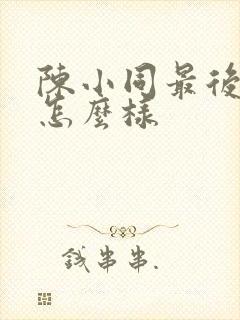 陳小同最後
怎麼樣
錢串串.